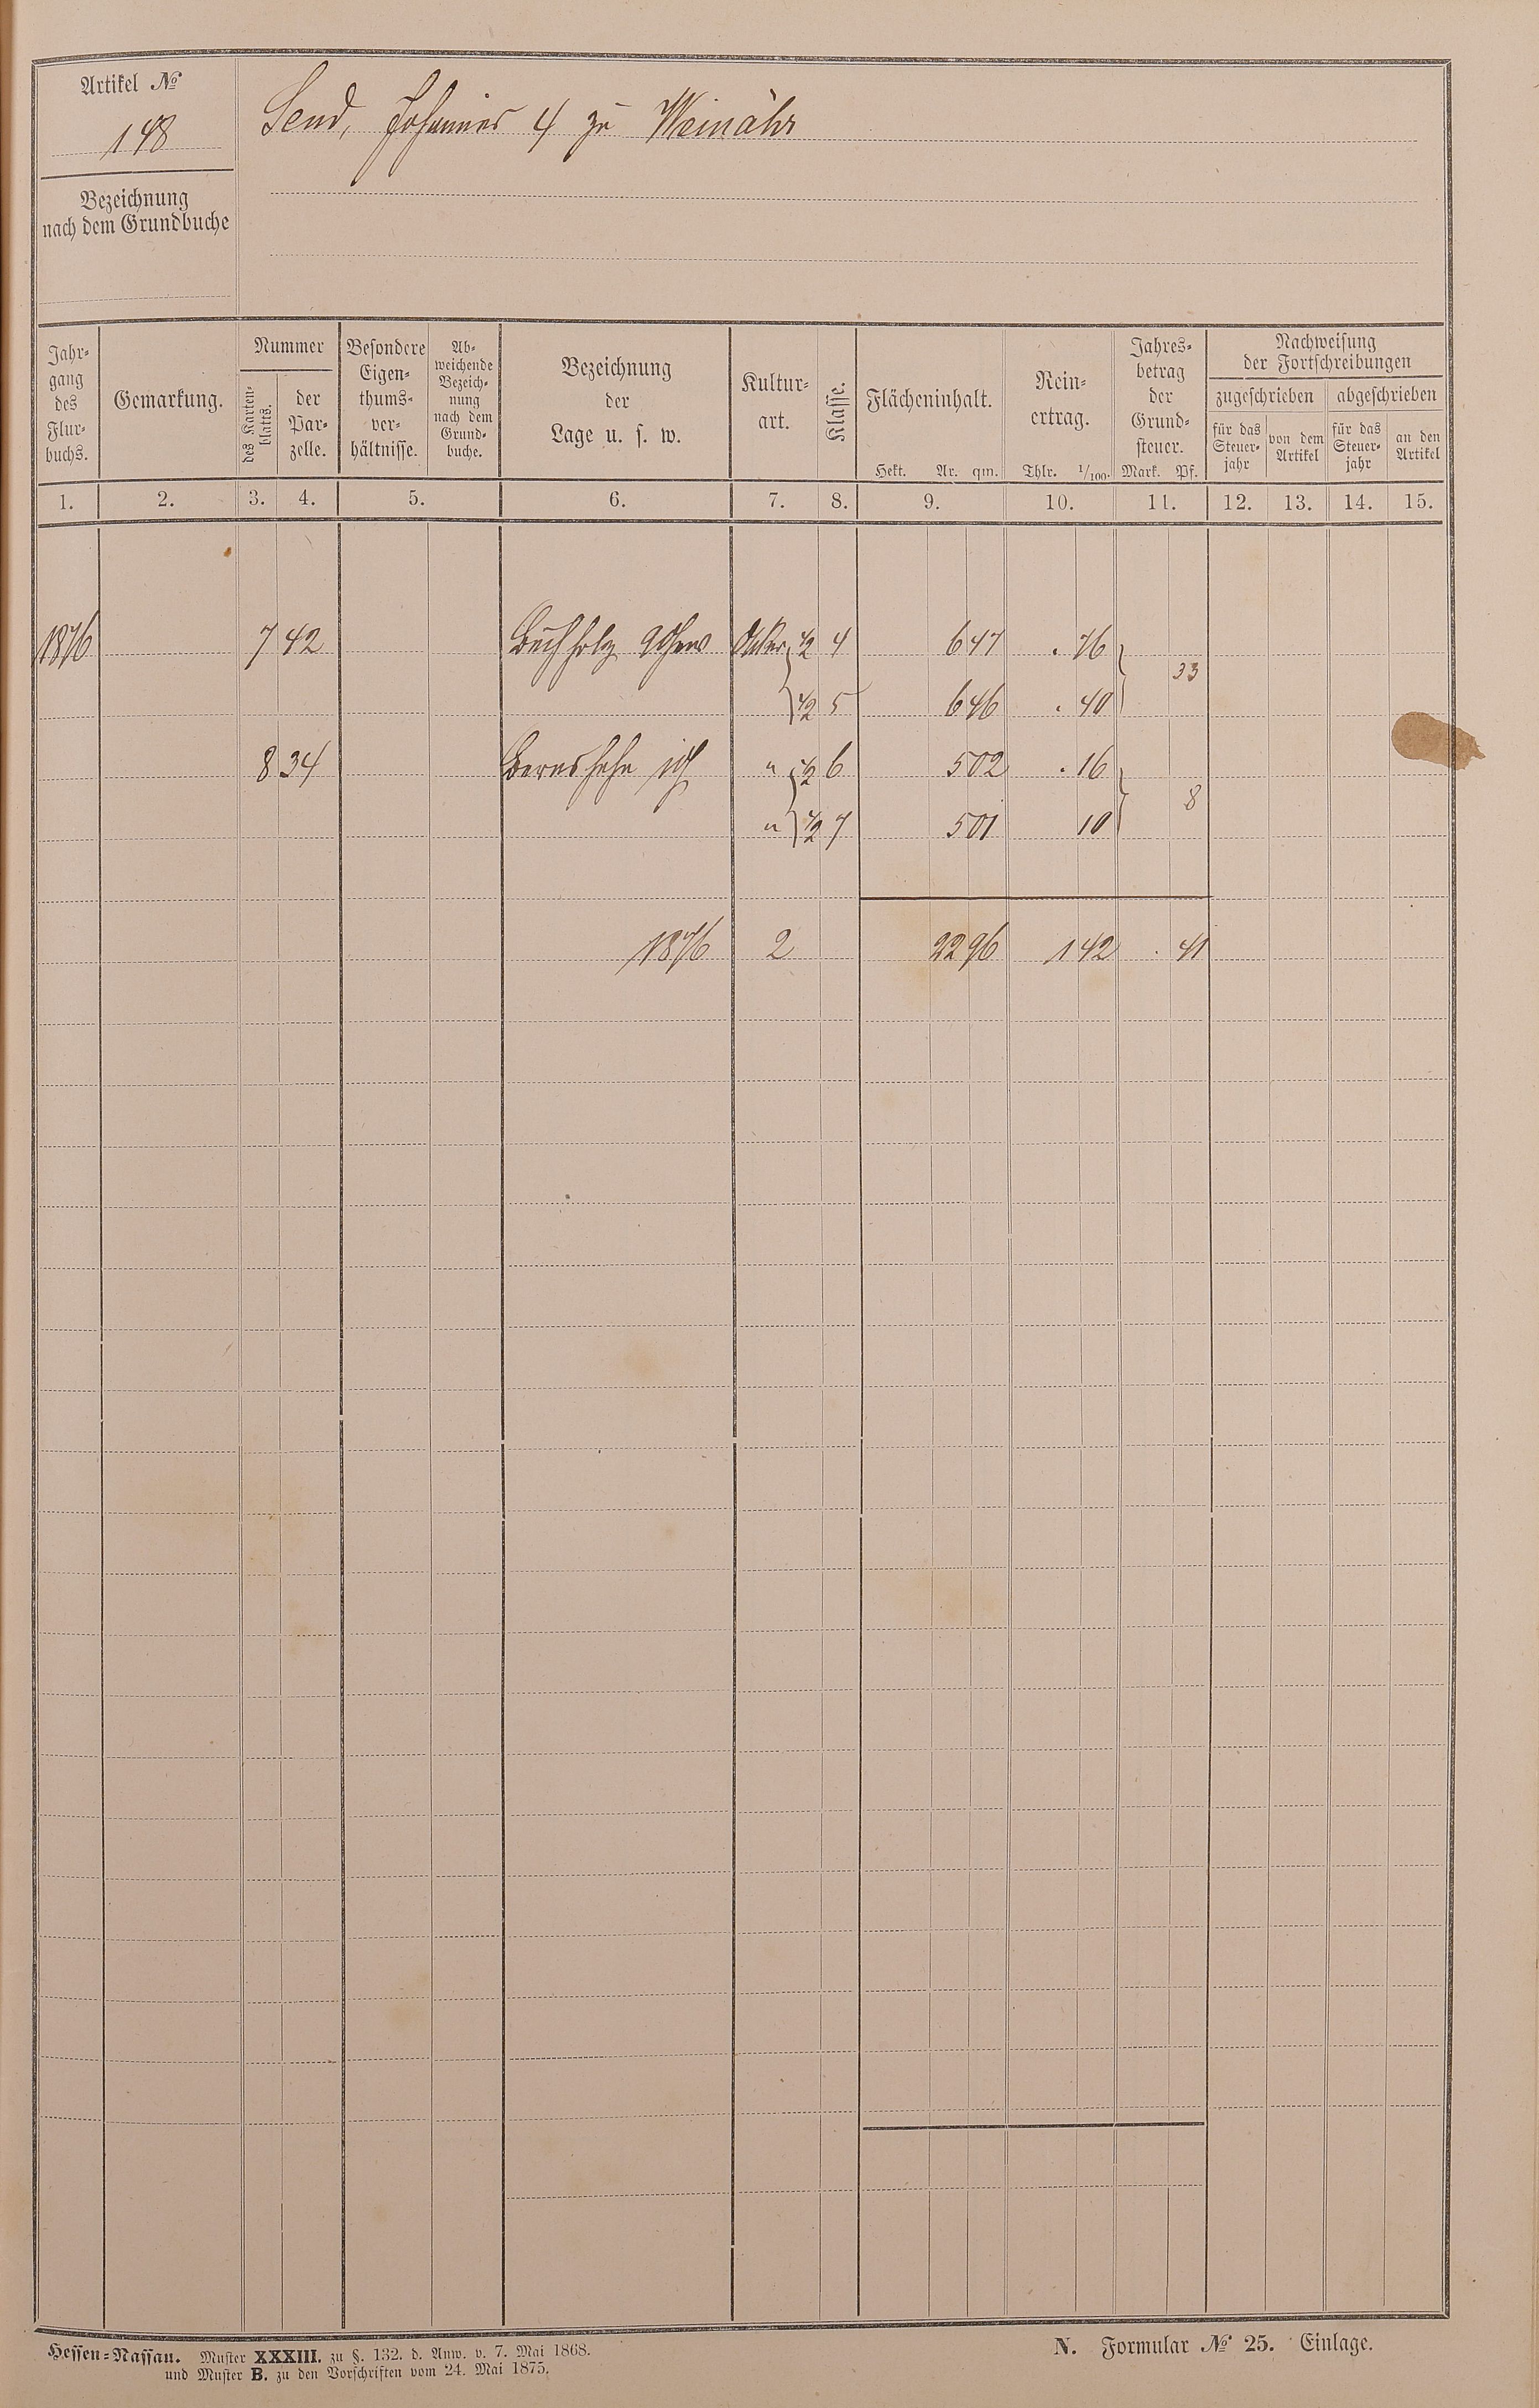 Artikel №
148
Send, Johannes 4 zu Weinähr
Bezeichnung
nach dem Grundbuche
Jahr-
gang
des
Flur-
buchs.
Gemarkung.
Nummer
des Karten-
blatts.
der
Par-
zelle.
Besondere
Eigen-
thums-
ver-
hältnisse.
Ab-
weichende
Bezeich-
nung
nach dem
Grund-
buche.
Bezeichnung
der
Lage u. s. w.
Kultur-
art.
Klasse.
Flächeninhalt.
Hekt. Ar. qm.
Rein-
ertrag.
Thlr. 1/100.
Jahres-
betrag
der
Grund-
steuer.
Mark. Pf.
Nachweisung
der Fortschreibungen
zugeschrieben abgeschrieben
für das
Steuer-
jahr
von dem
Artikel
für das
Steuer-
jahr
an den
Artikel
1. 2. 3. 4. 5. 6. 7. 8. 9. 10. 11. 12. 13. 14. 15.
1876 7 42 Buchholz Acker 1/2 4 6 47 . 76
33
1/2 5 6 46 . 40
8 34 " 1/2 6 5 02 . 16
8
" 1/2 7 5 01 10
1876 2 22 96 1 42 . 41
Hessen-Nassau. Muster XXXIII. zu §. 132. d. Anw. v. 7. Mai 1868.
und Muster B. zu den Vorschriften vom 24. Mai 1875.
N. Formular № 25. Einlage.